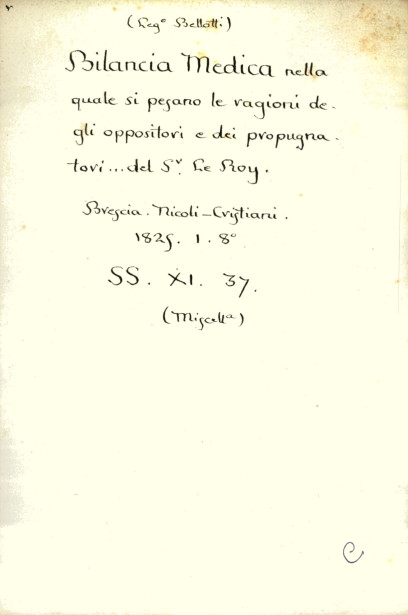 (Leg.º Bellotti)
Bilancia Medica nella
quale si pesano le ragioni de-
gli oppositori e dei propugna-
tori... del S.r Le Roy.
Brescia. Nicoli-Cristiani.
1825. 1. 8º
SS. XI. 37.
(Miscell.a)
C